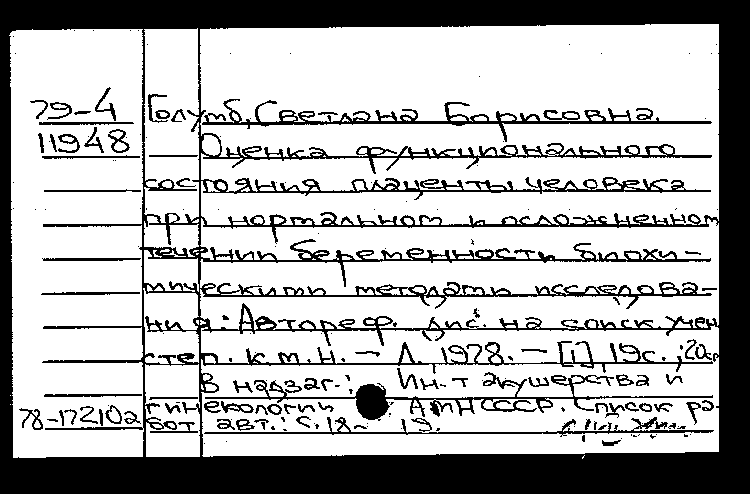 79-4 Голумб, Светлана Борисовна.
11948 Оценка функционального
состояния плаценты человека
при нормальном и осложненном
течении беременности биохи-
мическими методами исследова-
ния: Автореф. дис. на соиск. учен
степ. к.м.н. — Л., 1978. — [1], 19с.; 20см
В надзаг.: Ин-т акушерства и
гинекологии АМН СССР. Список ра-
78-17210а бот авт.: с. 18-19.